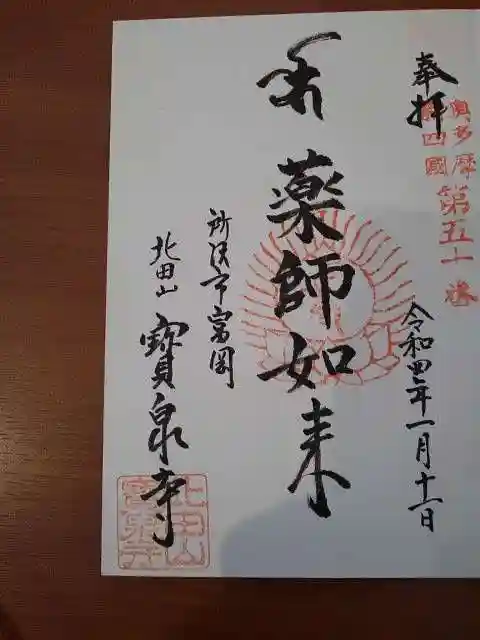 奉拝
奥多摩
新四國第五十番
令和四年一月十一日
薬師如来
所沢市富岡
北田山
寳泉寺